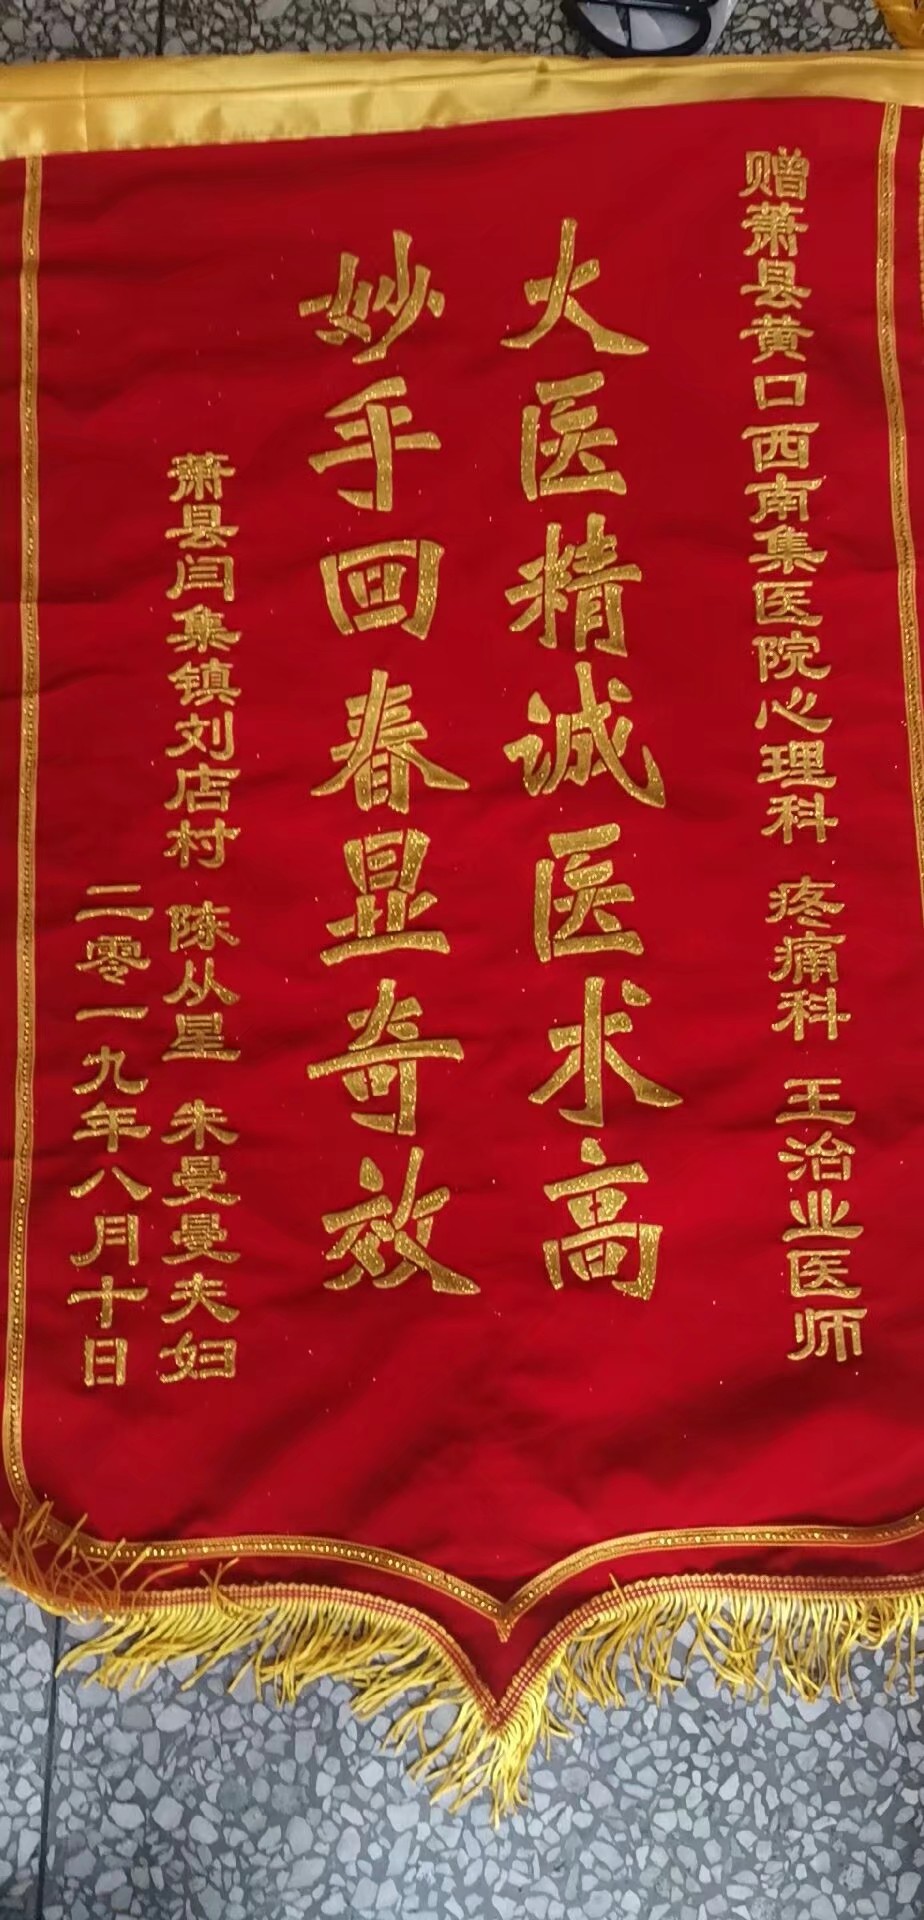 赠萧县黄口西南集医院心理科 疼痛科 王治业医师
大医精诚医术高
妙手回春显奇效
萧县闫集镇刘店村 陈从星 朱曼曼夫妇
二零一九年八月十日